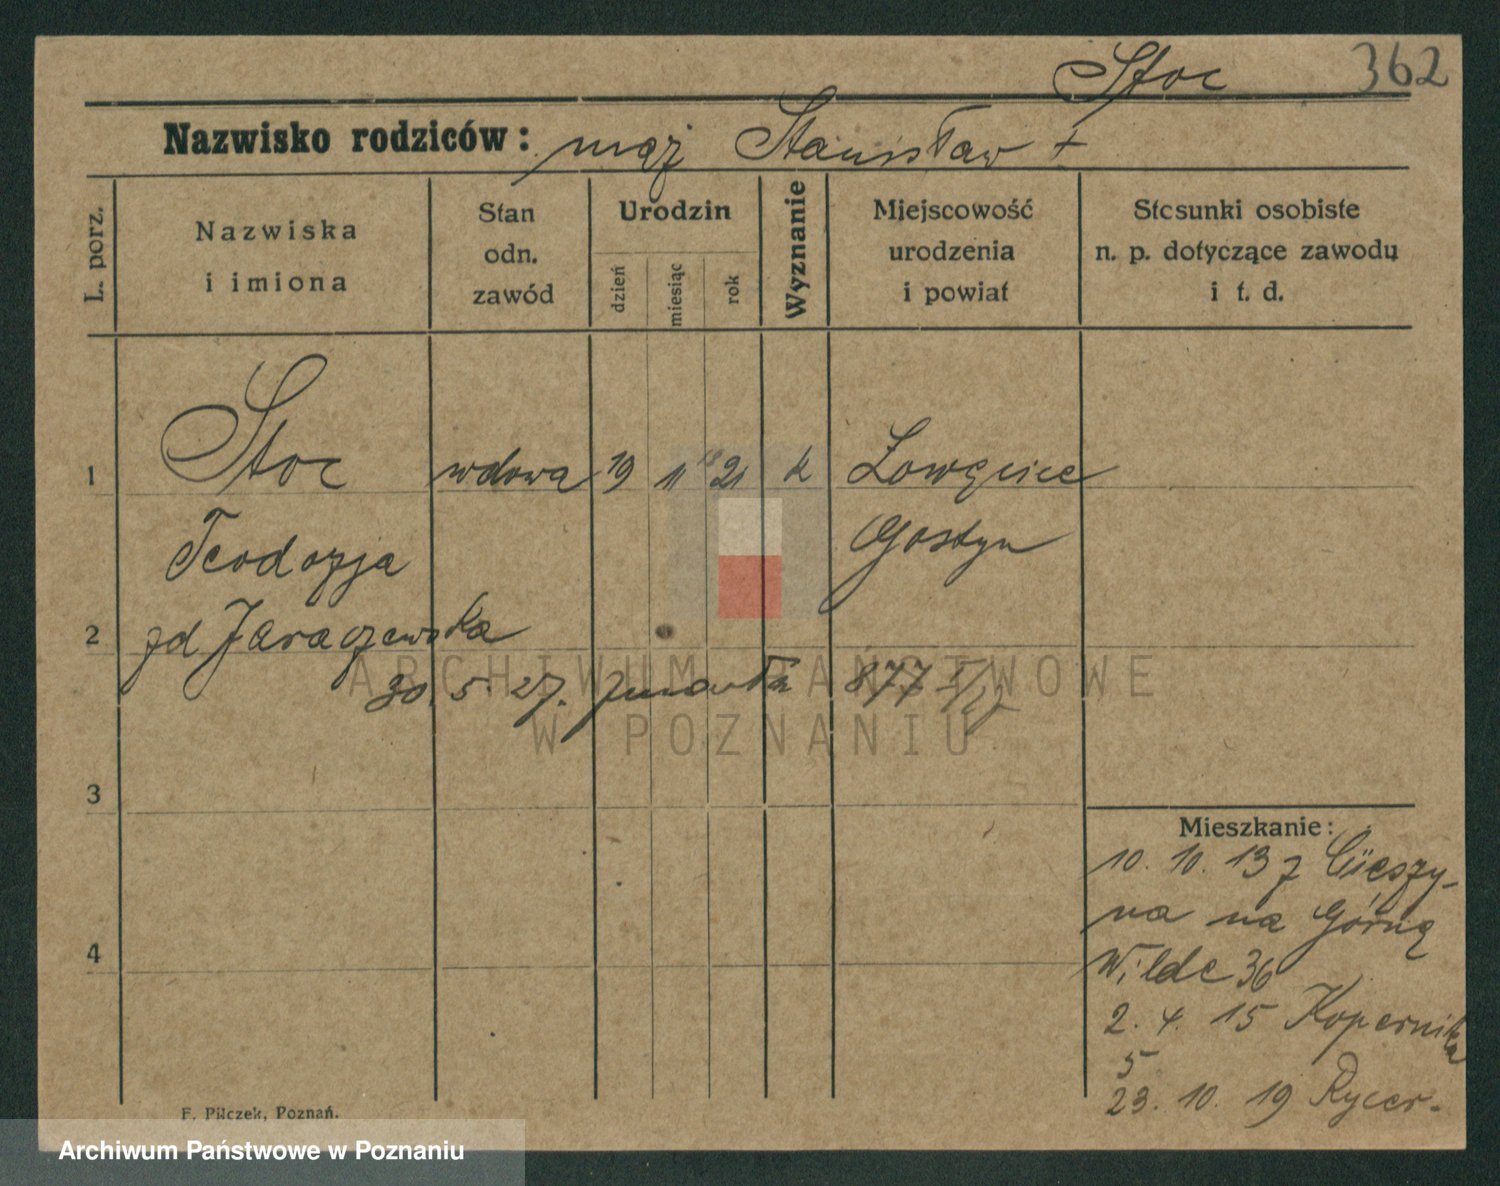 Stoc 362
Nazwisko rodziców: mąż Stanisław +
L. porz.
Nazwiska
i imiona
Stan
odn.
zawód
Urodzin
dzień
miesiąc
rok
Wyznanie
Miejscowość
urodzenia
i powiat
Stosunki osobiste
n. p. dotyczące zawodu
i t. d.
1 Stoc wdowa 19 11 21 k
Teodozja Gostyn
2 zd Jaraczewska
30. 5. 27. zmarła 877
3
4
Mieszkanie:
10. 10. 13 z Cieszy-
na na Górną
Wilde 36
2. 4. 15 Kopernika
5
23. 10. 19 Rycer-
F. Pilczek, Poznań.
ARCHIWUM PAŃSTWOWE
W POZNANIU
Archiwum Państwowe w Poznaniu